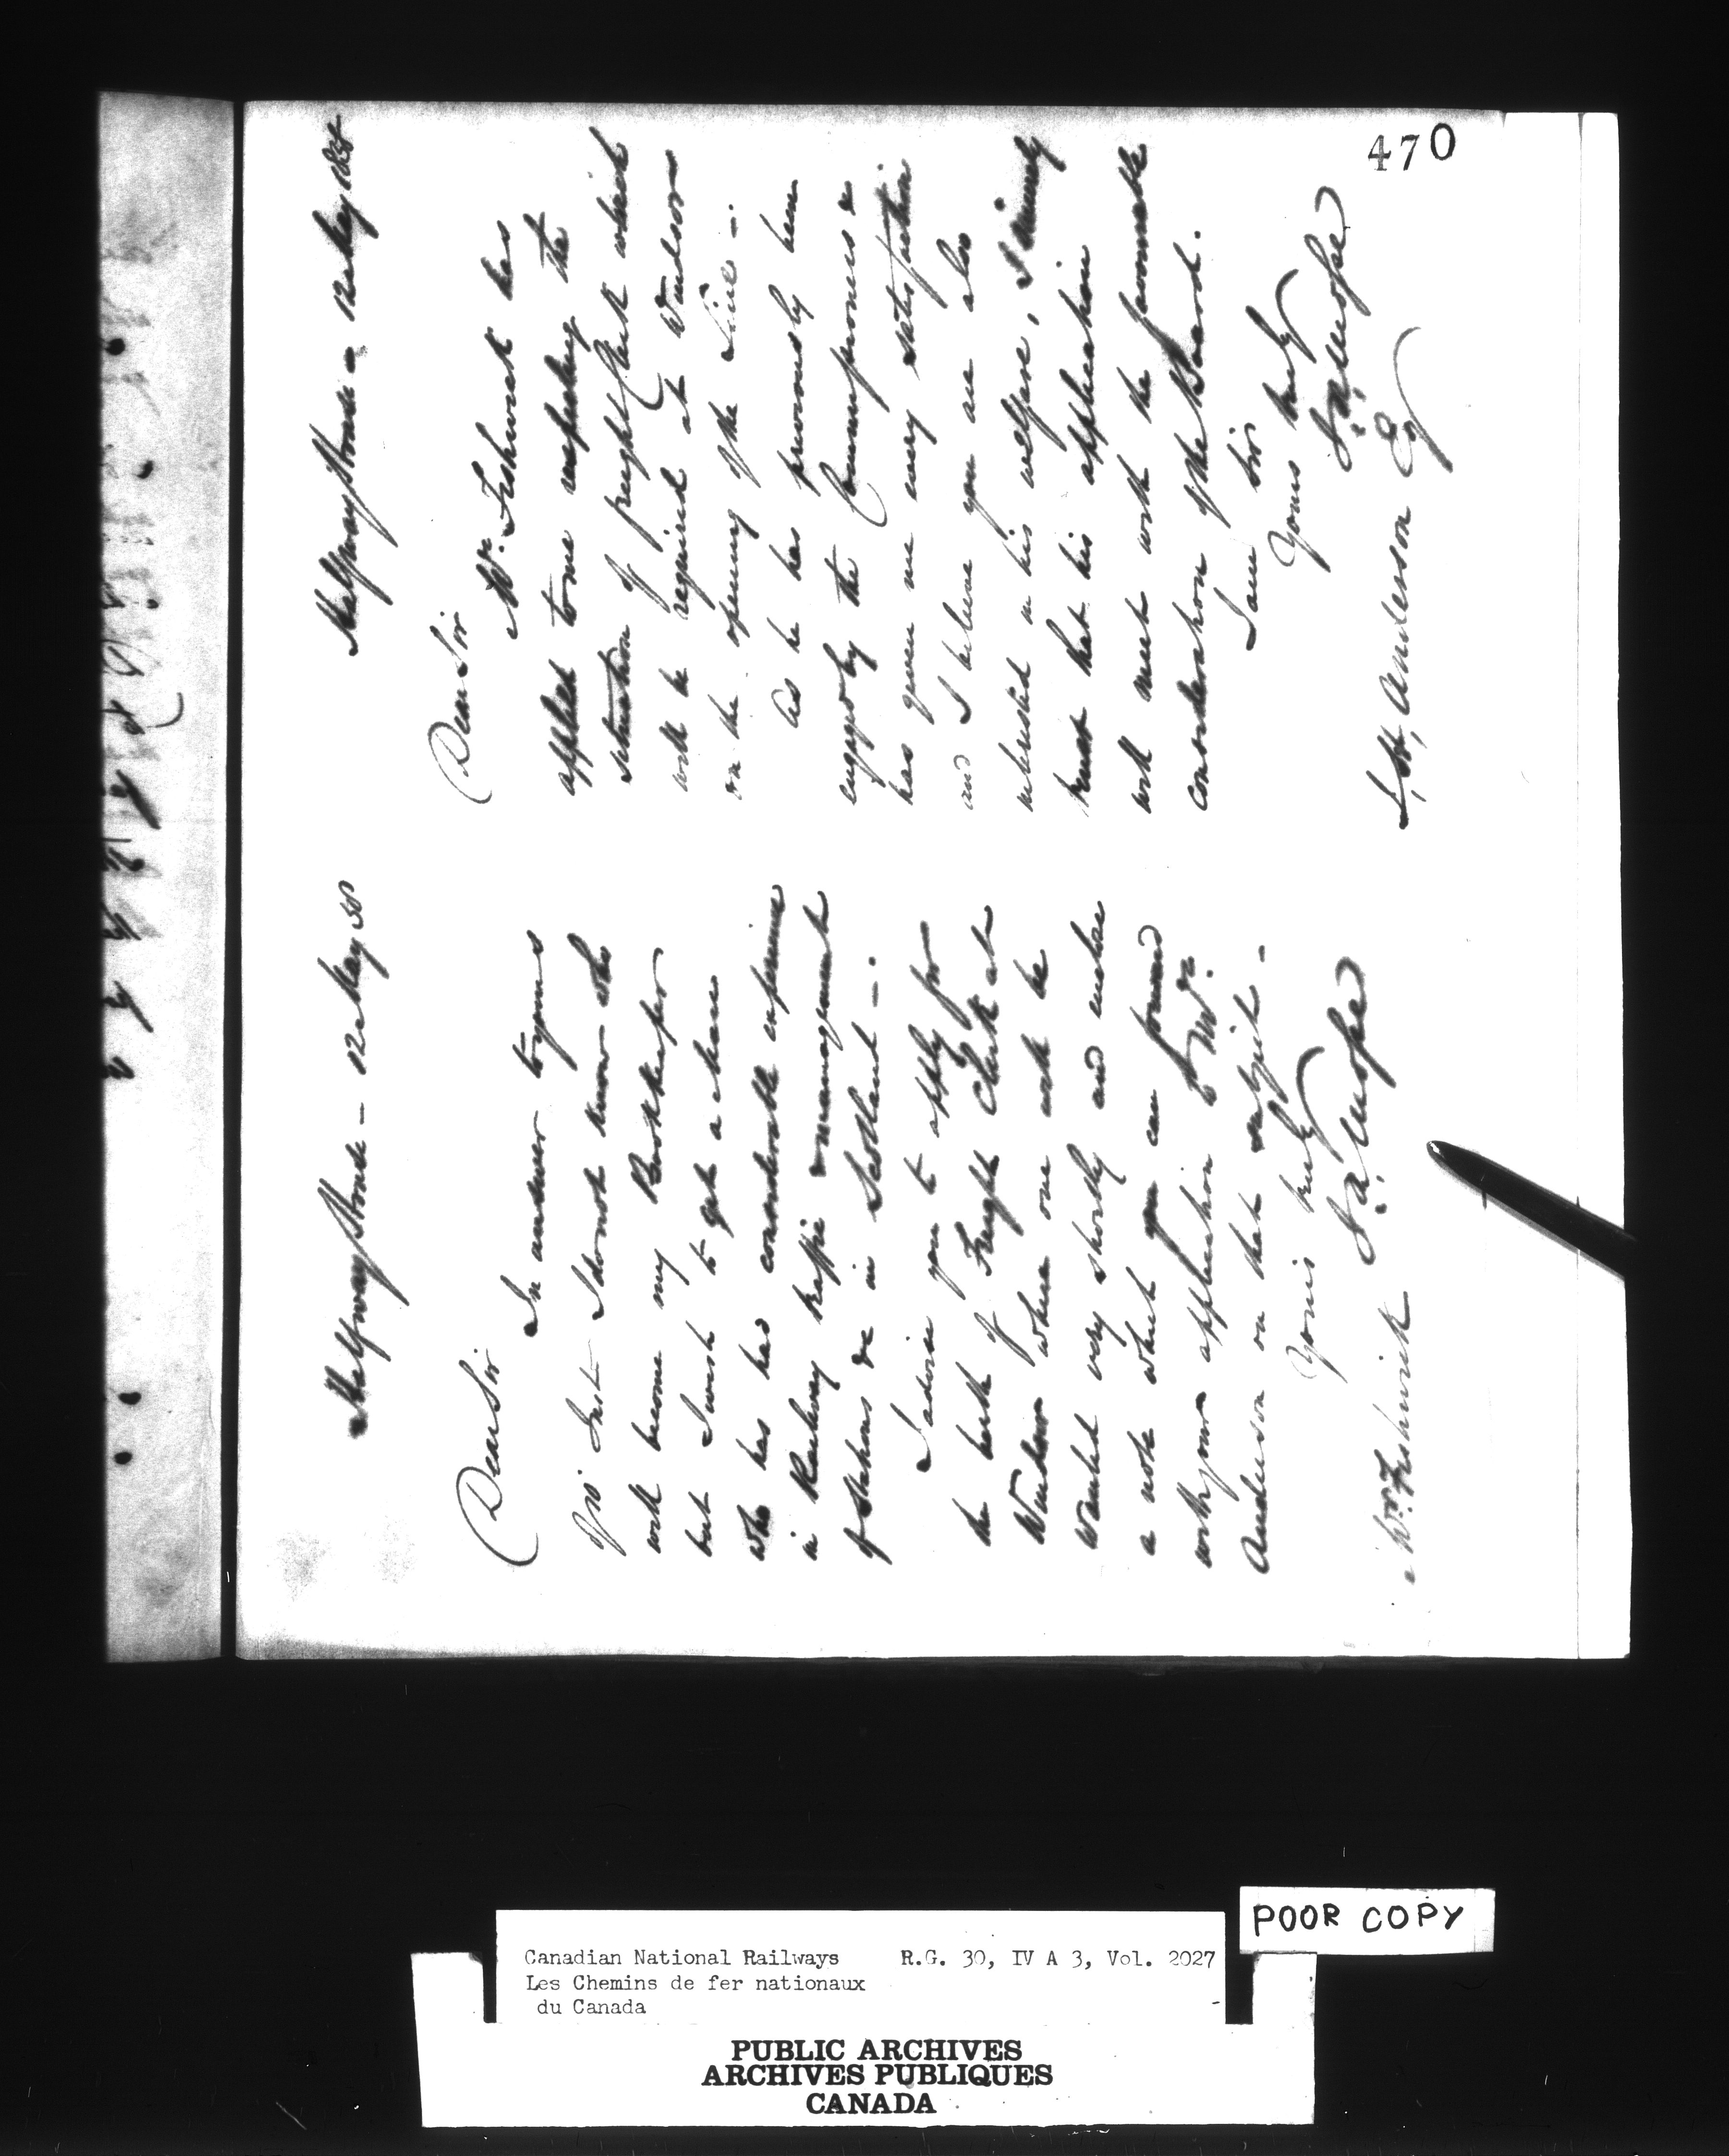 470
Halfway House - 12 May 58
Dear Sir
In answer to yours
of 10 Inst I do not know who
will become my Bookkeeper
but I wish to get a man
who has had considerable experience
in Railway traffic & management
of Stations &c in Scotland -.
I advise you to apply for
the berth of Freight Clerk at
Windsor where one will be
wanted very shortly and enclose
a note which you can forward
with your application to Mr.
Anderson on that subject -
Yours truly
Mr. Fishwick
Halfway House - 12 May 1858
Dear Sir
Mr. Fishwick has
applied to me respecting the
situation of freight Clerk which
will be required at Windsor
on the opening of the Line -.
As he has previously been
engaged by the Commissioners &
has given me every satisfaction
and I believe you are also
interested in his welfare, I sincerely
trust that his application
will meet with the favourable
consideration of the Board.
I am Sir
Yours truly
Anderson Esq
POOR COPY
Canadian National Railways R.G. 30, IV A 3, Vol. 2027
Les Chemins de fer nationaux
du Canada
PUBLIC ARCHIVES
ARCHIVES PUBLIQUES
CANADA